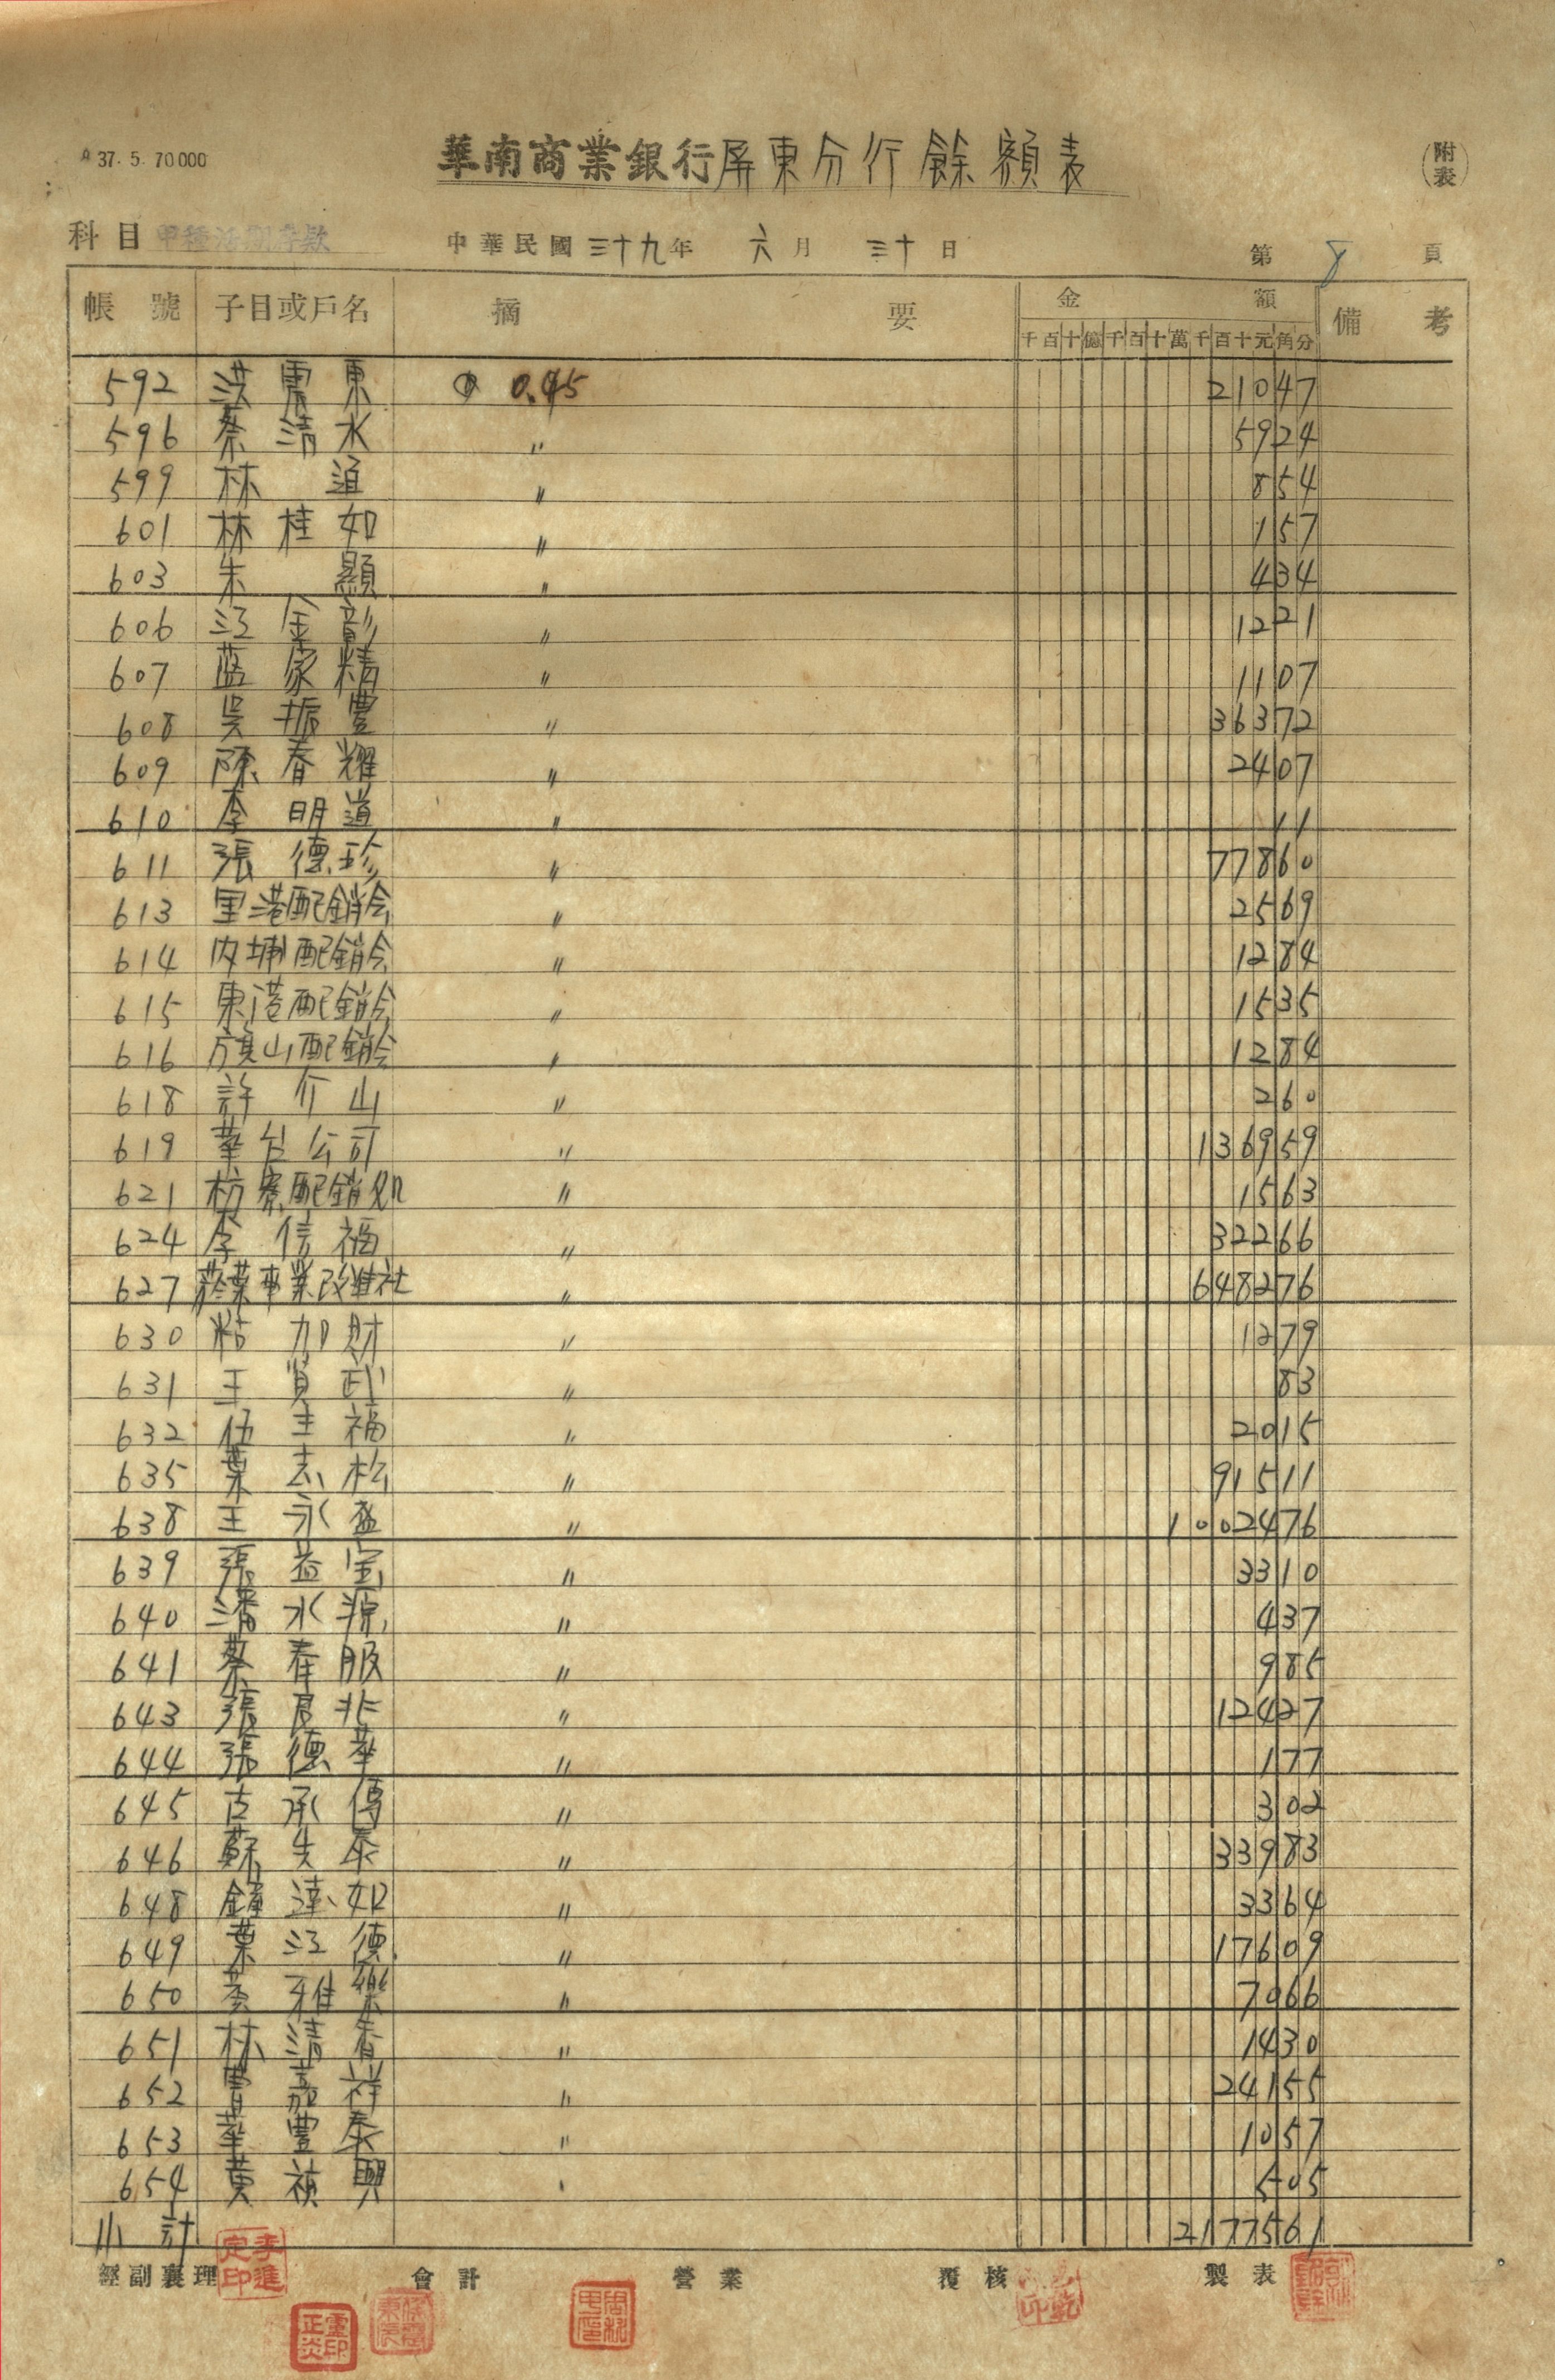 37. 5. 70000
華南商業銀行屏東分行餘額表
(附表)
科目 甲種活期存款 中華民國三十九年 六月 三十日 第 8 頁
帳號 子目或戶名 摘要 金額 備考
千百十億千百十萬千百十元角分
592 洪震東 0.45 21047
596 蔡清水 〃 5924
599 林道 〃 854
601 林桂如 〃 157
603 朱顯 〃 434
606 江金彰 〃 1221
607 藍家精 〃 1107
608 吳振豊 〃 36372
609 陳春耀 〃 2407
610 李明道 〃 11
611 張德珍 〃 77860
613 里港配銷会 〃 2569
614 内埔配銷会 〃 1284
615 東港配銷会 〃 1535
616 旗山配銷会 〃 1284
618 許介山 〃 260
619 華台公司 〃 136959
621 枋寮配銷処 〃 1563
624 李信福 〃 32266
627 菸葉事業改進社 〃 648276
630 粘加財 〃 1279
631 王賀武 〃 83
632 伍主福 〃 2015
635 葉志松 〃 91511
638 王永盛 〃 1002476
639 張益宝 〃 3310
640 潘水源 〃 437
641 蔡春服 〃 985
643 張良非 〃 12427
644 張德華 〃 177
645 古承傳 〃 302
646 蘇失泰 〃 33983
648 鍾達如 〃 3364
649 葉江德 〃 17609
650 李雅樂 〃 7066
651 林清香 〃 1430
652 曹嘉祥 〃 24155
653 華豐泰 〃 1057
654 黄禎興 〃 505
小計 2177561
經副襄理 會計 營業 覆核 製表
李進定印